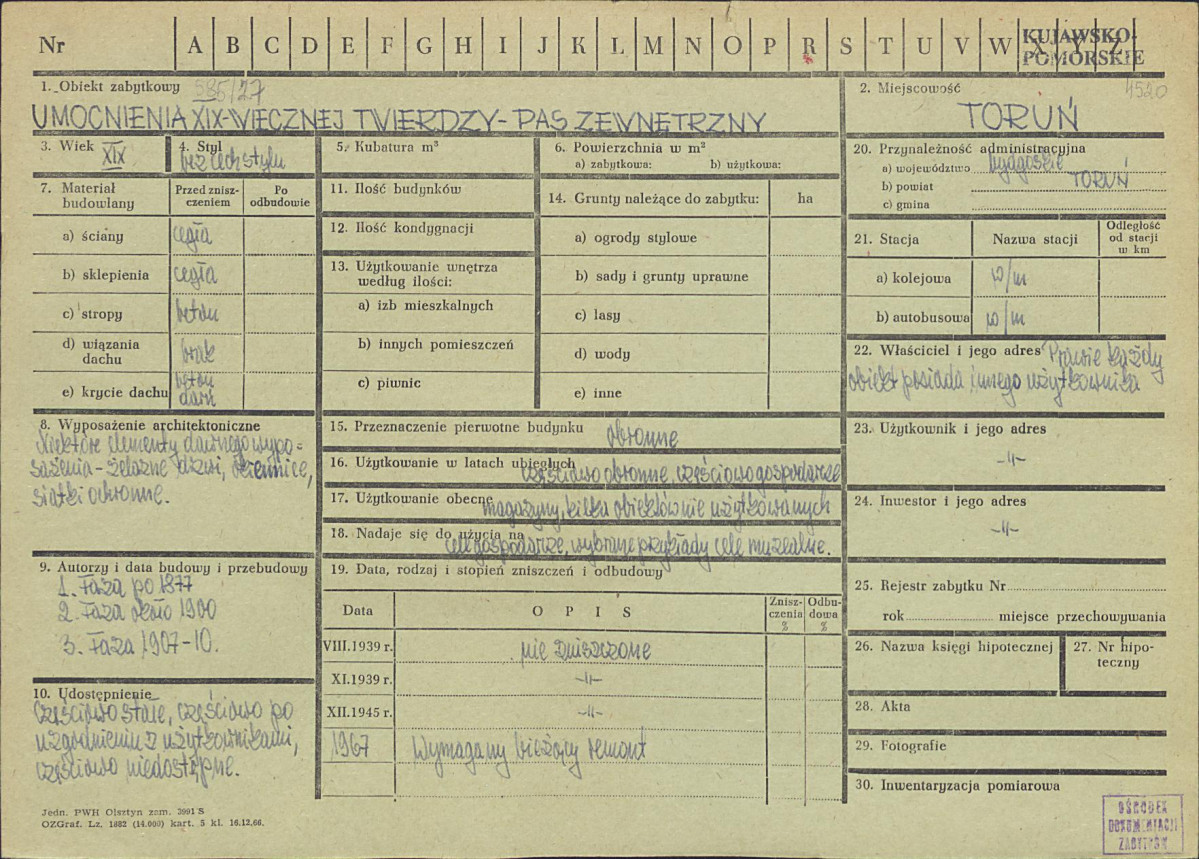 Nr A B C D E F G H I J K L M N O P R S T U V W X Y Z
KUJAWSKO-
POMORSKIE
1. Obiekt zabytkowy 585/27
UMOCNIENIA XIX-WIECZNEJ TWIERDZY - PAS ZEWNĘTRZNY
2. Miejscowość 4520
TORUŃ
3. Wiek XIX
4. Styl
bez cech stylu
5. Kubatura m³
6. Powierzchnia w m²
a) zabytkowa: b) użytkowa:
7. Materiał
budowlany
Przed znisz-
czeniem
Po
odbudowie
a) ściany cegła
b) sklepienia cegła
c) stropy beton
d) wiązania
dachu brak
e) krycie dachu beton
darń
8. Wyposażenie architektoniczne
Niektóre elementy dawnego wypo=
sażenia - żelazne drzwi, okiennice,
siatki ochronne.
9. Autorzy i data budowy i przebudowy
1. Faza po 1877
2. Faza około 1900
3. Faza 1907-10.
10. Udostępnienie
częściowo stałe, częściowo po
uzgodnieniu z użytkownikami,
częściowo niedostępne.
11. Ilość budynków
12. Ilość kondygnacji
13. Użytkowanie wnętrza
według ilości:
a) izb mieszkalnych
b) innych pomieszczeń
c) piwnic
14. Grunty należące do zabytku: ha
a) ogrody stylowe
b) sady i grunty uprawne
c) lasy
d) wody
e) inne
15. Przeznaczenie pierwotne budynku obronne
16. Użytkowanie w latach ubiegłych
częściowo obronne, częściowo gospodarcze
17. Użytkowanie obecne
magazyny, kilka obiektów nie użytkowanych
18. Nadaje się do użycia na
cele gospodarcze, wybrane przykłady cele muzealne.
19. Data, rodzaj i stopień zniszczeń i odbudowy
Data O P I S Znisz-
czenia
% Odbu-
dowa
%
VIII.1939 r. nie zniszczone
XI.1939 r. -"-
XII.1945 r. -"-
1967 Wymagany bieżący remont
20. Przynależność administracyjna
a) województwo bydgoskie
b) powiat TORUŃ
c) gmina
21. Stacja Nazwa stacji Odległość
od stacji
w km
a) kolejowa w/m
b) autobusowa w/m
22. Właściciel i jego adres Prawie każdy
obiekt posiada innego użytkownika
23. Użytkownik i jego adres
-"-
24. Inwestor i jego adres
-"-
25. Rejestr zabytku Nr
rok miejsce przechowywania
26. Nazwa księgi hipotecznej
27. Nr hipo-
teczny
28. Akta
29. Fotografie
30. Inwentaryzacja pomiarowa
Jedn. PWH Olsztyn zam. 3991 S
OZGraf. Lz. 1882 (14.000) kart. 5 kl. 16.12.66.
OŚRODEK
DOKUMENTACJI
ZABYTKÓW